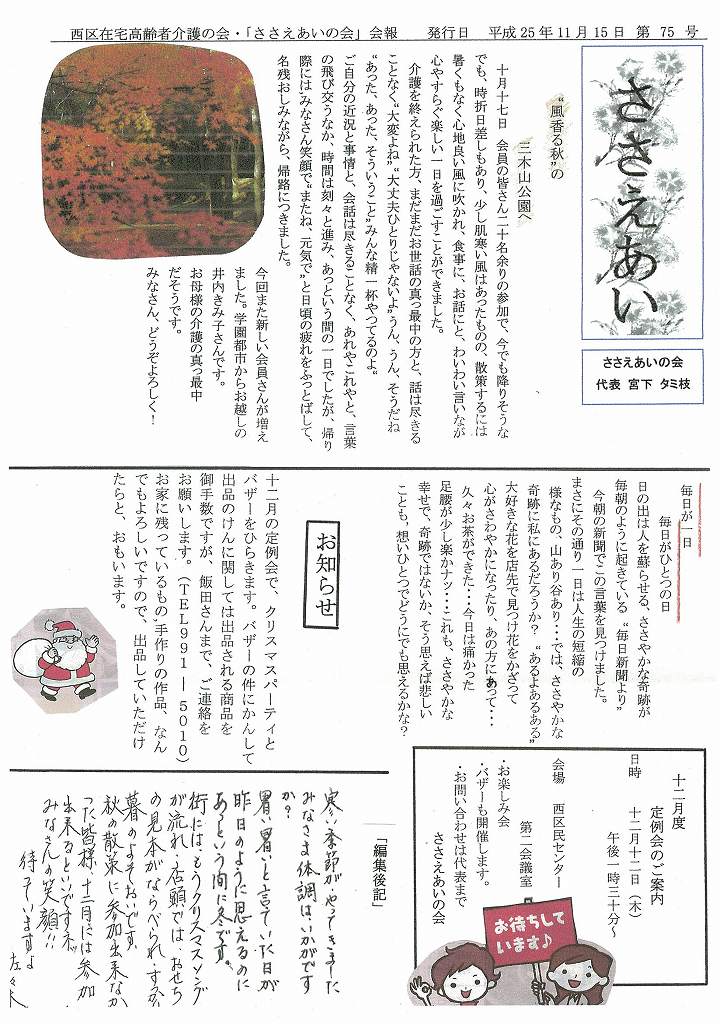 西区在宅高齢者介護の会・「ささえあいの会」会報　発行日　平成25年11月15日 第 75 号
ささえあい
ささえあいの会
代表 宮下 タミ枝
“風香る秋”の
三木山公園へ
十月十七日　会員の皆さん二十名余りの参加で、今でも降りそうな
でも、時折日差しもあり、少し肌寒い風はあったものの、散策するには
暑くもなく心地良い風に吹かれ、食事に、お話にと、わいわい言いなが
心やすらぐ楽しい一日を過ごすことができました。
介護を終えられた方、まだまだお世話の真っ最中の方と、話は尽きる
ことなく“大変よね”“大丈夫ひとりじゃないよ”うん、うん、そうだね
“あった、あった、そういうこと”みんな精一杯やつてるのよ“
ご自分の近況と事情と、会話は尽きることなく、あれやこれやと、言葉
の飛び交うなか、時間は刻々と進み、あっという間の一日でしたが、帰り
際には“みなさん笑顔で“またね、元気で”と日頃の疲れをふっとばして、
名残おしみながら、帰路につきました。
今回また新しい会員さんが増え
ました。学園都市からお越しの
井内きみ子さんです。
お母様の介護の真っ最中
だそうです。
みなさん、どうぞよろしく！
毎日が一日
毎日がひとつの日
日の出は人を蘇らせる、ささやかな奇跡が
毎朝のように起きている　“毎日新聞より”
今朝の新聞でこの言葉を見つけました。
まさにその通り一日は人生の短縮の
様なもの、山あり谷あり・・・では、ささやかな
奇跡に私にあるだろうか？　“あるよあるある”
大好きな花を店先で見つけ花をかざって
心がさわやかになったり、あの方にあって・・・
久々お茶ができた・・・今日は痛かった
足腰が少し楽かナッ・・・これも、ささやかな
幸せで、奇跡ではないか、そう思えば悲しい
ことも、想いひとつでどうにでも思えるかな？
お知らせ
十二月の定例会で、クリスマスパーティと
バザーをひらきます。バザーの件にかんして
出品のけんに関しては出品される商品を
御手数ですが、飯田さんまで、ご連絡を
お願いします。（TEL991―5010）
お家に残っているもの,手作りの作品、なん
でもよろしいですので、出品していただけ
たらと、おもいます。
十二月度
定例会のご案内
日時　十二月十二日（木）
午後一時三十分〜
会場　西区民センター
第二会議室
・お楽しみ会
・バザーも開催します。
・お問い合わせは代表まで
ささえあいの会
お待ちして
います♪
「編集後記」
寒い季節が、やってきました
みなさま体調はいかがです
か？
暑い暑いと言っていた日が
昨日のように思えるのに
あっという間に冬です。
街には、もうクリスマスソング
が流れ、店頭では、おせち
の見本がならべられ、すっかり
暮のよそおいです。
秋の散策に参加出来なか
った皆様 十二月には参加
出来るといいですネ。
みなさんの笑顔!!
待っていますよ
佐々木